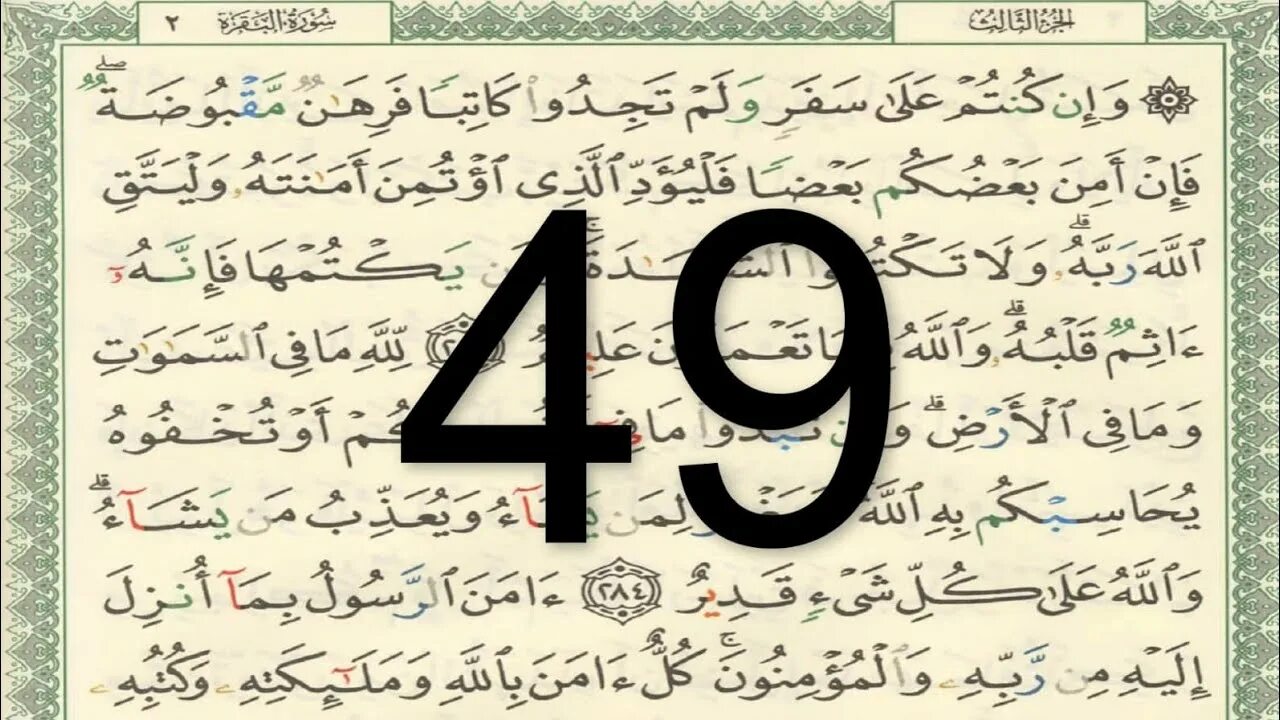 الجزء الثالث
سورة البقرة ٢
۞ وَإِن كُنتُمْ عَلَىٰ سَفَرٍ وَلَمْ تَجِدُوا۟ كَاتِبًا فَرِهَٰنٌ مَّقْبُوضَةٌ ۖ
فَإِنْ أَمِنَ بَعْضُكُم بَعْضًا فَلْيُؤَدِّ ٱلَّذِى ٱؤْتُمِنَ أَمَٰنَتَهُۥ وَلْيَتَّقِ
ٱللَّهَ رَبَّهُۥ ۗ وَلَا تَكْتُمُوا۟ ٱلشَّهَٰدَةَ ۚ يَكْتُمْهَا فَإِنَّهُۥٓ
ءَاثِمٌ قَلْبُهُۥ ۗ وَٱللَّهُ بِمَا تَعْمَلُونَ عَلِيمٌ لِّلَّهِ مَا فِى ٱلسَّمَٰوَٰتِ
وَمَا فِى ٱلْأَرْضِ ۗ وَإِن تُبْدُوا۟ مَا فِىٓ أَوْ تُخْفُوهُ
يُحَاسِبْكُم بِهِ ٱللَّهُ لِمَن يَشَآءُ وَيُعَذِّبُ مَن يَشَآءُ ۗ
وَٱللَّهُ عَلَىٰ كُلِّ شَىْءٍ قَدِيرٌ ٢٨٤ ءَامَنَ ٱلرَّسُولُ بِمَآ أُنزِلَ
إِلَيْهِ مِن رَّبِّهِۦ وَٱلْمُؤْمِنُونَ ۚ كُلٌّ ءَامَنَ بِٱللَّهِ وَمَلَٰٓئِكَتِهِۦ وَكُتُبِهِۦ
49